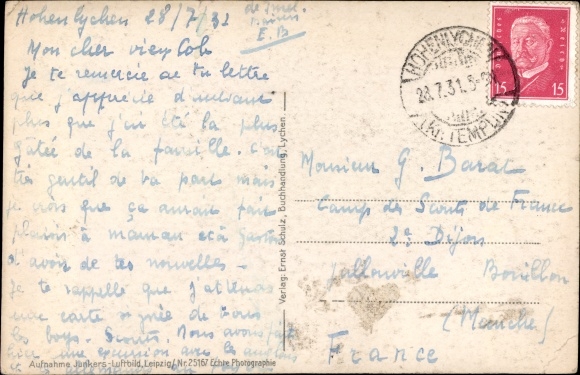 Hohenlychen 28/7/31
Mon cher vieux Bob
Je te remercie de ta lettre
que j'apprécie d'autant
plus que j'ai été la plus
gâtée de la famille. C'est
très gentil de ta part mais
je crois que ça aurait fait
plaisir à maman et à Gaston
d'avoir de tes nouvelles -
Je te rappelle que j'attends
une carte signée de tous
les boys-scouts. Nous avons fait
hier une excursion avec les anglais
E.B
Deutsches Reich
15 15
HOHENLYCHEN
28.7.31.
(Kr. TEMPLIN)
Monsieur G. Barat
Camp des Scouts de France
2e Dijon
Jullouville Bouillon
(Manche)
France
Verlag: Ernst Schulz, Buchhandlung, Lychen.
Aufnahme Junkers-Luftbild, Leipzig/Nr. 25167 Echte Photographie